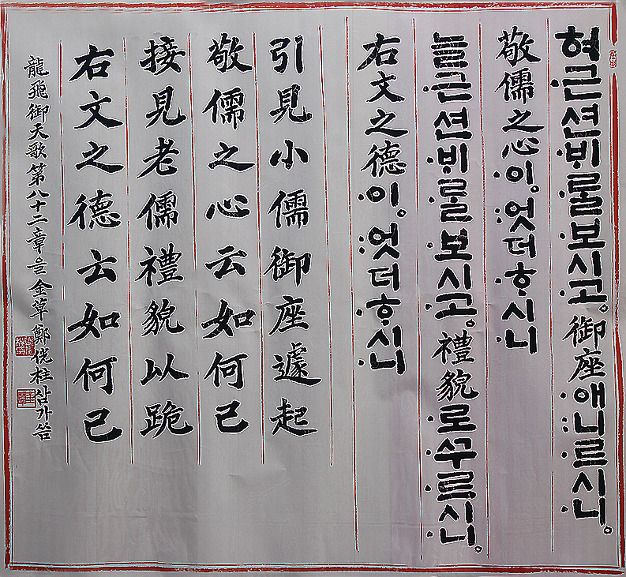 혀근션ᄇᆡᄅᆞᆯ보시고。御座애니르시니。
敬儒之心이。엇더ᄒᆞ시니
늘근션ᄇᆡᄅᆞᆯ보시고。禮貌로ᄭᅮ르시니。
右文之德이。엇더ᄒᆞ시니
引見小儒御座遽起
敬儒之心云如何已
接見老儒禮貌以跪
右文之德云如何已
龍飛御天歌第八十二章을 金草 鄭 삼가씀